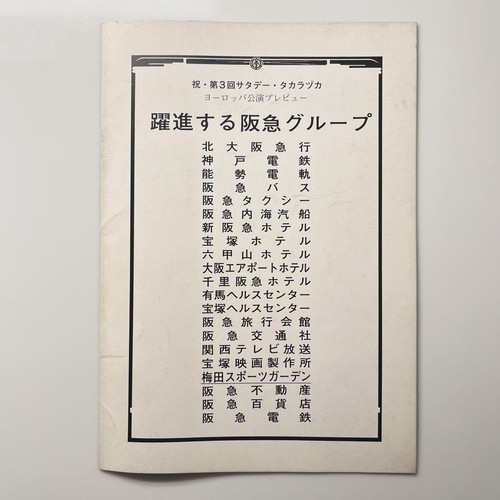 祝・第3回サタデー・タカラヅカ
ヨーロッパ公演プレビュー
躍進する阪急グループ
北大阪急行
神戸電鉄
能勢電軌
阪急バス
阪急タクシー
阪急内海汽船
新阪急ホテル
宝塚ホテル
六甲山ホテル
大阪エアポートホテル
千里阪急ホテル
有馬ヘルスセンター
宝塚ヘルスセンター
阪急旅行会館
阪急交通社
関西テレビ放送
宝塚映画製作所
梅田スポーツガーデン
阪急不動産
阪急百貨店
阪急電鉄